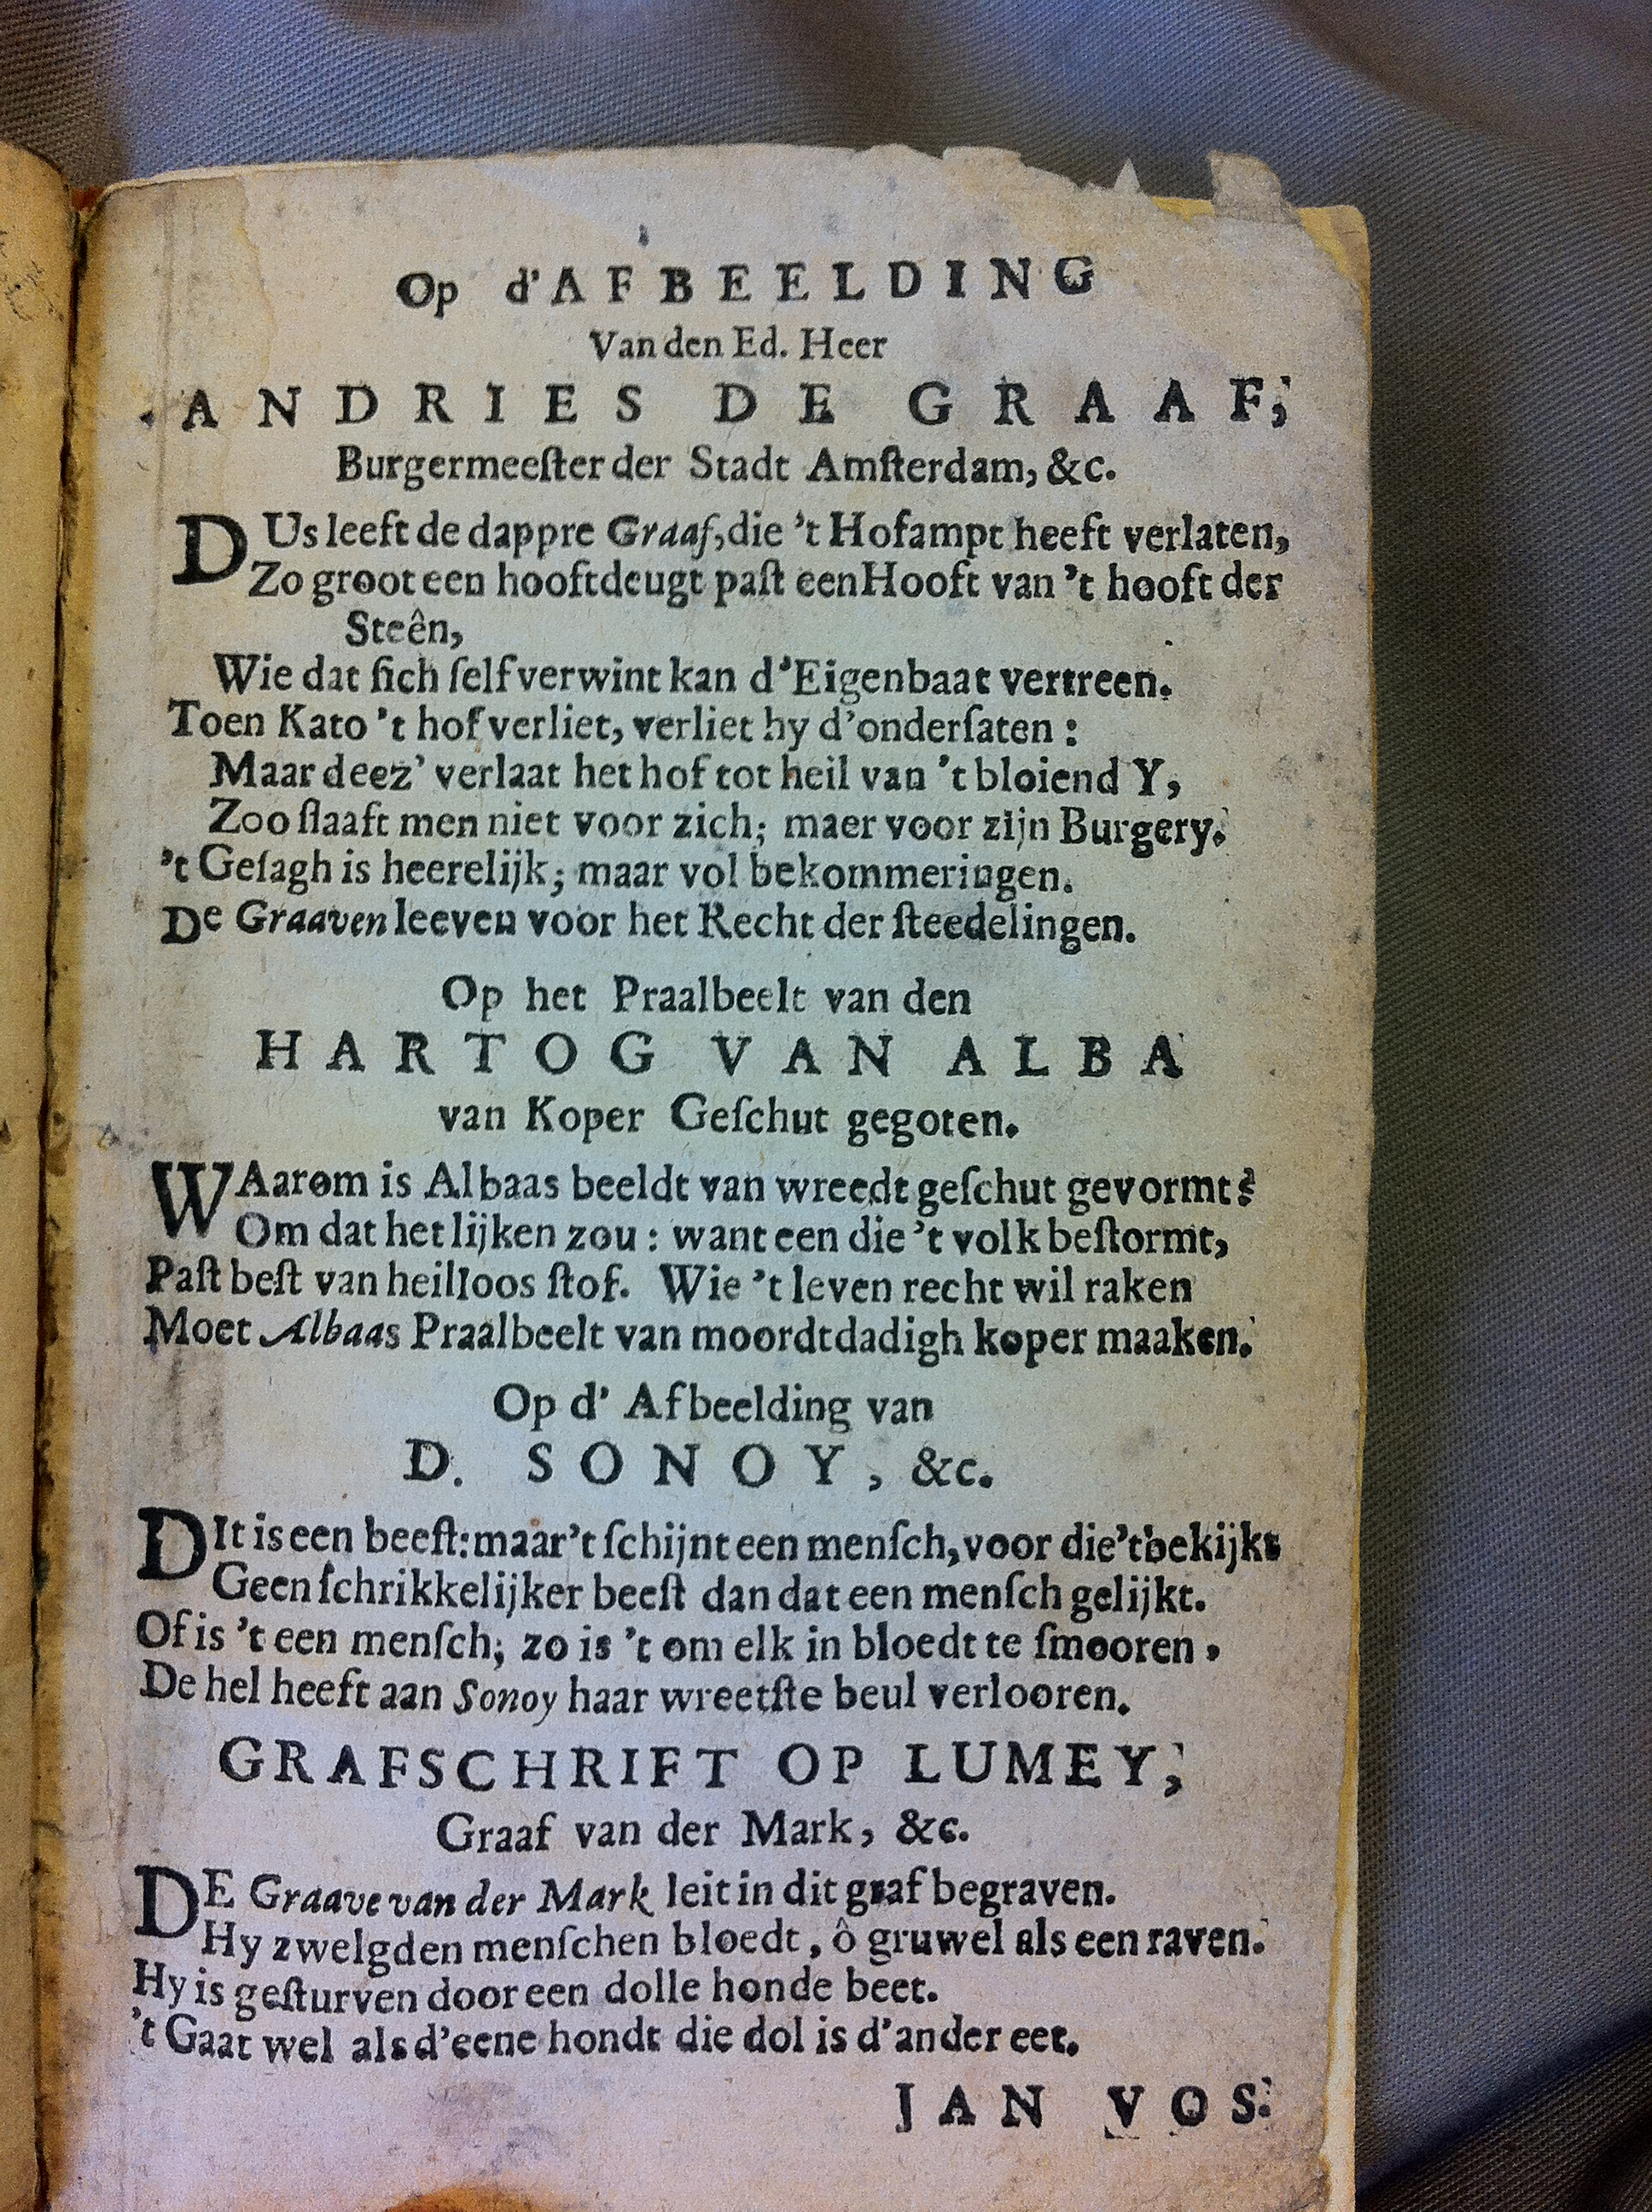 Op d'AFBEELDING
Van den Ed. Heer
ANDRIES DE GRAAF,
Burgermeeſter der Stadt Amſterdam, &c.
DUs leeft de dappre Graaf, die 't Hofampt heeft verlaten,
Zo groot een hooftdeugt paſt een Hooft van 't hooft der
Steên,
Wie dat ſich ſelf verwint kan d'Eigenbaat vertreen.
Toen Kato 't hof verliet, verliet hy d'onderſaten:
Maar deez' verlaat het hof tot heil van 't bloiend Y,
Zoo ſlaaft men niet voor zich; maer voor zijn Burgery.
't Geſagh is heerelijk; maar vol bekommeringen.
De Graaven leeven voor het Recht der ſteedelingen.
Op het Praalbeelt van den
HARTOG VAN ALBA
van Koper Geſchut gegoten.
WAarom is Albaas beeldt van wreedt geſchut gevormt?
Om dat het lijken zou: want een die 't volk beſtormt,
Paſt beſt van heilloos ſtof. Wie 't leven recht wil raken
Moet Albaas Praalbeelt van moordtdadigh koper maaken.
Op d' Afbeelding van
D. SONOY, &c.
DIt is een beeſt: maar 't ſchijnt een menſch, voor die 't bekijkt
Geen ſchrikkelijker beeſt dan dat een menſch gelijkt.
Of is 't een menſch; zo is 't om elk in bloedt te ſmooren,
De hel heeft aan Sonoy haar wreetſte beul verlooren.
GRAFSCHRIFT OP LUMEY,
Graaf van der Mark, &c.
DE Graave van der Mark leit in dit graf begraven.
Hy zwelgden menſchen bloedt, ô gruwel als een raven.
Hy is geſturven door een dolle honde beet.
't Gaat wel als d'eene hondt die dol is d'ander eet.
JAN VOS.